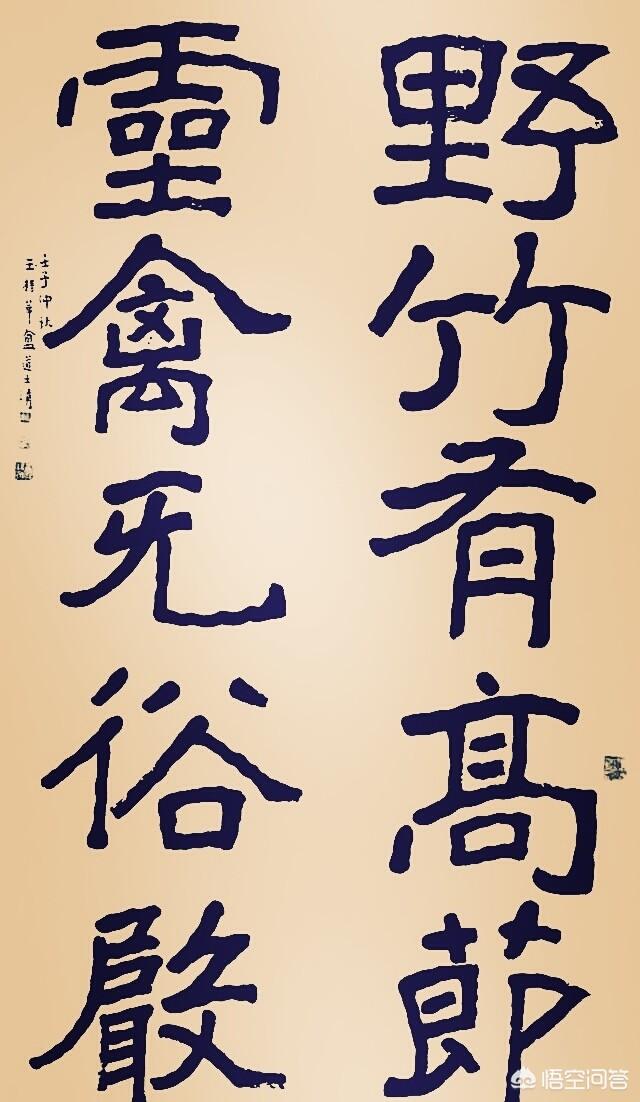 野竹有髙莭
靈禽无俗聲
壬子仲秋
玉梅華盦道士清
悟空问答